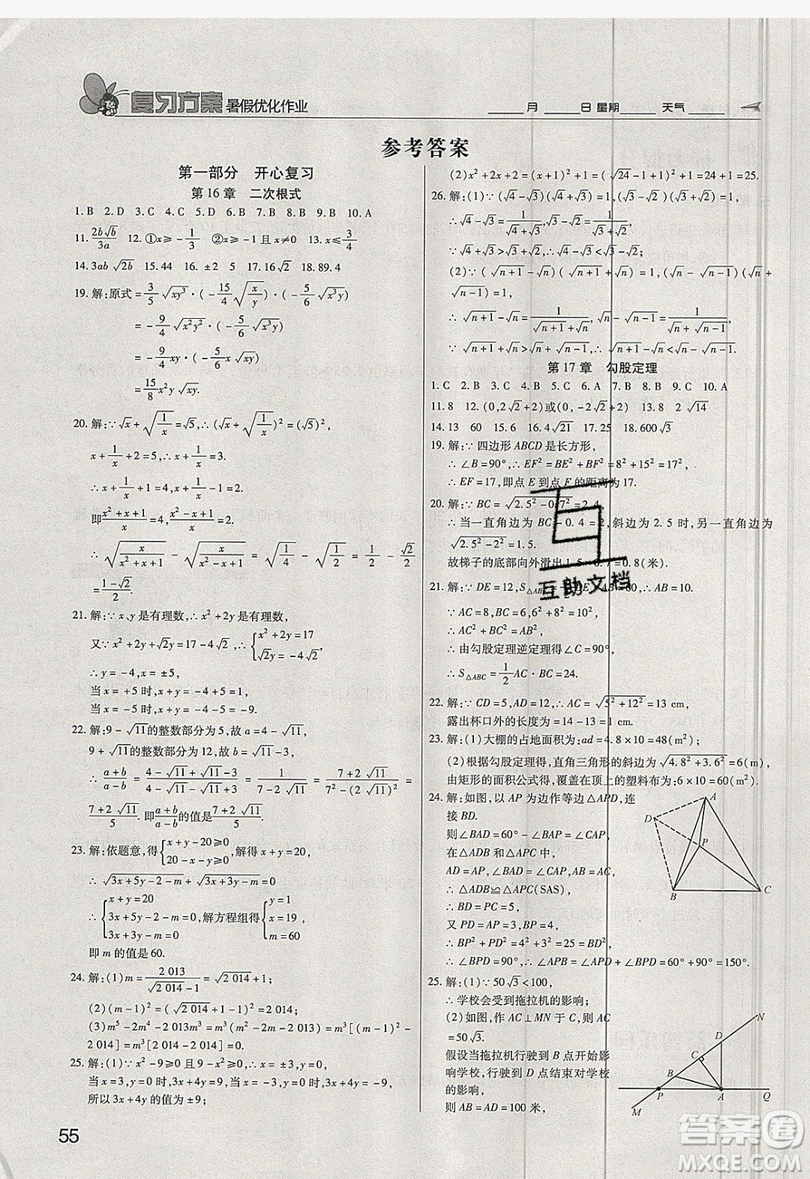 复习方案 暑假优化作业
____月____日 星期____ 天气____
参考答案
第一部分 开心复习
第16章 二次根式
1.B 2.D 3.C 4.C 5.B 6.A 7.B 8.B 9.B 10.A
11.2b√b/3a 12.①x≥-1/3 ②x≥-1且x≠0 13.x≤3/4
14.3ab√(2b) 15.44 16.±2 5 17.-2√2 18.89.4
19.解:原式=3/5√(xy³)·(-15/4√(x/y))·(-5/6√(x³y))
=-9/4√(x²y²)·(-5/6√(x³y))
=-9/4xy·(-5/6x√(xy))
=15/8x²y√(xy).
20.解:∵√x+√(1/x)=√5,∴(√x+√(1/x))²=5,
x+1/x+2=5;
∴x+1/x=3,∴x+1/x+1=4,
即(x²+x+1)/x=4,(x²-x+1)/x=2,
∴√(x/(x²+x+1))-√(x/(x²-x+1))=√(1/4)-√(1/2)=1/2-√2/2
=(1-√2)/2.
21.解:∵x、y是有理数,∴x²+2y是有理数,
又∵x²+2y+√2y=17-4√2,∴{x²+2y=17 y=-4
∴y=-4,x=±5,
当x=+5时,x+y=-4+5=1;
当x=-5时,x+y=-4-5=-9.
22.解:9-√11的整数部分为5,故a=4-√11,
9+√11的整数部分为12,故b=√11-3.
∴(a+b)/(a-b)=(4-√11+√11-3)/(4-√11-√11+3)=1/(7-2√11)=(7+2√11)/5=
(7+2√11)/5.即(a+b)/(a-b)的值是(7+2√11)/5.
23.解:依题意,得{x+y-20≥0 20-x-y≥0 解得x+y=20.
∴√(3x+5y-2-m)+√(3x+y-m)=0.
∴{x+y=20 3x+5y-2-m=0 3x+y-m=0,解方程组得{y=1 x=19, m=60
即m的值是60.
24.解:(1)m=2 013/(√2 014-1)=√2 014+1;
(2)(m-1)²=(√2 014+1-1)²=2 014;
(3)m⁵-2m⁴-2013m³=m³[(m²-2m+1)-
2 014]=m³[(m-1)²-2 014]=0.
25.解:(1)∵x²-9≥0且9-x²≥0,∴x=±3,∴y=0,
当x=3时,3x+4y=9;当x=-3时,3x+4y=-9,
所以3x+4y的值为±9;
(2)x²+2x+2=(x+1)²+1=(√24-1+1)²+1=24+1=25.
26.解:(1)∵(√4-√3)(√4+√3)=1,(√3-√2)(√3+√2)=1,
∴√4-√3=1/(√4+√3),√3-√2=1/(√3+√2),
∵√4+√3>√3+√2,∴√4-√3<√3-√2.
(2)∵(√(n+1)-√n)(√(n+1)+√n)=1,(√n-√(n-1))(√n+√(n-1))=1,
∴√(n+1)-√n=1/(√(n+1)+√n),√n-√(n-1)=1/(√n+√(n-1)),
∵√(n+1)+√n>√n+√(n-1),∴√(n+1)-√n<√n-√(n-1).
第17章 勾股定理
1.C 2.B 3.C 4.A 5.D 6.D 7.B 8.C 9.C 10.A
11.8 12.(0,2√2+2)或(0,2√2-2) 13.2√14
14.13 60 15.6 16.4√21 17.25 18.600√3
19.解:∵四边形ABCD是长方形,
∴∠B=90°,∴EF²=BE²+BF²=8²+15²=17².
∴EF=17,即点E到点F的距离为17.
20.解:∵BC=√(2.5²-0.7²)=2.4,
∴当一直角边为BC-0.4=2,斜边为2.5时,另一直角边为
√(2.5²-2²)=1.5.
故梯子的底部向外滑出1.5-0.7=0.8(米).
21.解:∵DE=12,S△ABE=1/2DE·AB=60,∴AB=10.
∵AC=8,BC=6,6²+8²=10²,
∴AC²+BC²=AB²,
∴由勾股定理逆定理得∠C=90°,
∴S△ABC=1/2AC·BC=24.
22.解:∵CD=5,AD=12,∴AC=√(5²+12²)=13 cm,
露出杯口外的长度为=14-13=1(cm).
23.解:(1)大棚的占地面积为:4.8×10=48(m²);
(2)根据勾股定理得,直角三角形的斜边为√(4.8²+3.6²)=6(m),
由矩形的面积公式得,覆盖在顶上的塑料布为:6×10=60(m²).
24.解:如图,以AP为边作等边△APD,连
接BD.
则∠BAD=60°-∠BAP=∠CAP,
在△ADB和△APC中,
AD=AP,∠BAD=∠CAP,AB=AC
∴△ADB≌△APC(SAS),
∴BD=PC=5,
又PD=AP=3,BP=4,
∴BP²+PD²=4²+3²=25=BD²
∴∠BPD=90°,∴∠APB=∠APD+∠BPD=60°+90°=150°
25.解:(1)∵50√3<100,
∴学校会受到拖拉机的影响;
(2)如图,作AC⊥MN于C,AC
=50√3.
假设当拖拉机行驶到B点开始影
响学校,行驶到D点结束对学校
的影响,
则AB=AD=100米,
A
D
P
B
C
N
C
D
B
M
P
A
Q
互助文档
答案圈
MXQE.COM
55